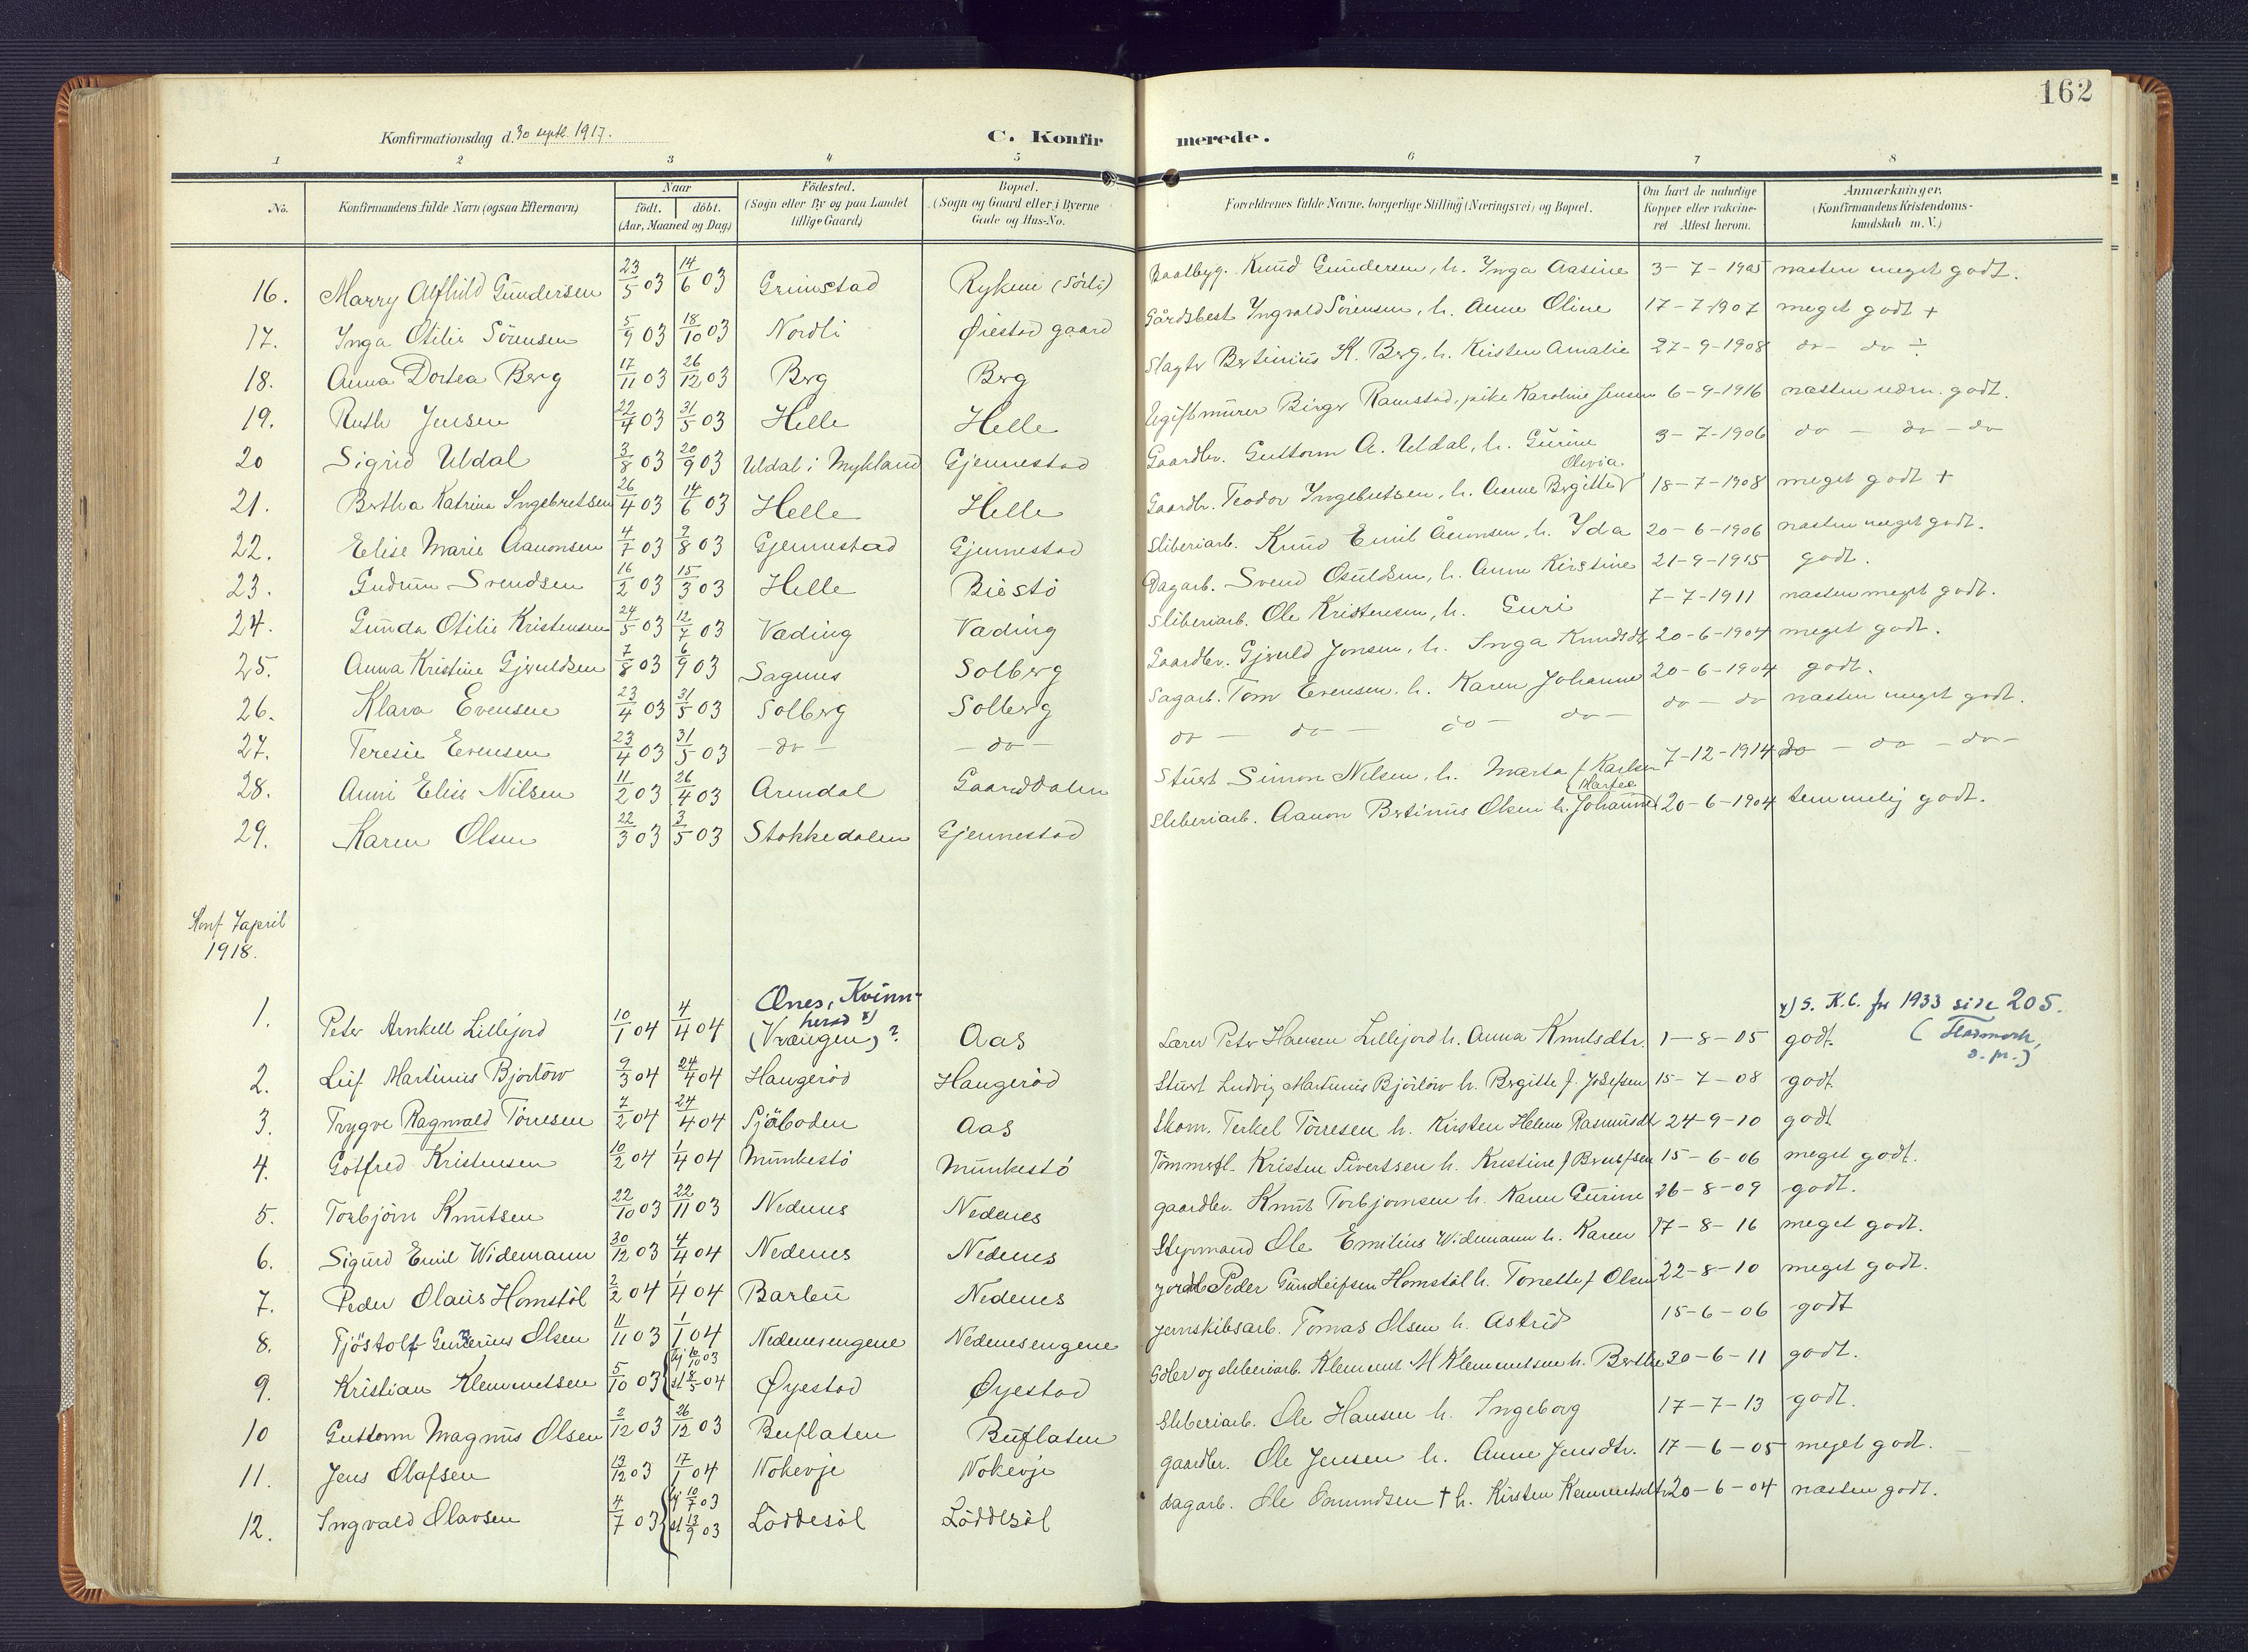 162
Konfirmationsdag d. 30 sept. 1917. C. Konfirmerede.
1 2 3 4 5 6 7 8
No. Konfirmandens fulde Navn (ogsaa Efternavn) Naar födt. döbt. (Aar, Maaned og Dag) Födested. (Sogn eller By og paa Landet tillige Gaard) Bopæl. (Sogn og Gaard eller i Byerne Gade og Hus-No. Forældrenes fulde Navne, borgerlige Stilling (Næringsvei) og Bopæl. Om havt de naturlige Kopper eller vakcineret Attest herom. Anmærkninger. (Konfirmandens Kristendomskundskab m. V.)
16. Marry Alfhild Gundersen 23/5 03 14/6 03 Grimstad Rykene (Sörli) Baatbyg. Knud Gundersen, h. Inga Aasine 3-7-1905 næsten meget godt.
17. Inga Otilie Sörensen 5/9 03 18/10 03 Nordli Øiestad gaard Gårdsbest Ingvald Sörensen, h. Anne Oline 17-7-1907 meget godt +
18. Anna Dortea Berg 17/11 03 26/12 03 Berg Berg Slagter Bertinius K. Berg, h. Kirsten Amalie 27-9-1908 do- do ÷
19. Ruth Jensen 22/4 03 31/5 03 Helle Helle Ugift murer Birger Ramstad, pike Karoline Jensen 6-9-1916 næsten udm. godt.
20 Sigrid Uldal 3/8 03 20/9 03 Uldal i Mykland Gjennestad Gaardbr. Guttorm A. Uldal, h. Gurine 3-7-1906 do - do - do
21. Bertha Katrine Ingebretsen 26/4 03 14/6 03 Helle Helle Gaardbr. Teodor Ingebretsen, h. Anne Bergitte Olevia 18-7-1908 meget godt +
22. Elise Marie Aanonsen 4/7 03 9/8 03 Gjennestad Gjennestad Sliberiarb. Knud Emil Ånonsen, h. Ida 20-6-1906 næsten meget godt.
23. Gudrun Svendsen 16/2 03 15/3 03 Helle Biestö Dagarb. Svend Osuldsen, h. Anne Kirstine 21-9-1915 godt.
24. Gunda Otilie Kristensen 24/5 03 12/7 03 Væding Væding Sliberiarb. Ole Kristensen, h. Guri 7-7-1911 næsten meget godt.
25. Anna Kristine Gjeruldsen 7/8 03 6/9 03 Sagnes Solberg Gaardbr. Gjeruld Jensen, h. Inga Knudsdtr 20-6-1904 meget godt.
26. Klara Evensen 23/4 03 31/5 03 Solberg Solberg Sagarb. Tom Evensen. h. Karen Johanne 20-6-1904 godt.
27. Teresie Evensen 23/4 03 31/5 03 - do - - do - do - do - do - do - do - do næsten meget godt.
28. Anni Elise Nilsen 11/2 03 26/4 03 Arendal Gaarddalen Stuert Simon Nilsen, h. Marta f. Karlsen 7-12-1914 do - do - do -
29. Karen Olsen 22/3 03 3/5 03 Stokkedalen Gjennestad Sliberiarb. Aanon Bertinius Olsen h. Johanne 20-6-1904 temmelig godt.
Konf 7 april
1918.
1. Peter Arnkell Lillejord 10/1 04 4/4 04 Ænes, Kvinnherad x) (Vrængen) ? Aas Lærer Peter Hansen Lillejord h. Anna Knutsdtr. 1-8-05 godt.
x) S. K.C. for 1933 side 205.
2. Leif Martinius Bjorlöw 9/3 04 24/4 04 Haugeröd Haugeröd Stuert Ludvig Martinius Bjorlöw h. Bergitte f. Josefsen 15-7-08 godt.
3. Trygve Ragnvald Törresen 7/2 04 24/4 04 Sjöboden Aas Skom. Terkel Törresen h. Kirsten Helene Rasmusdtr 24-9-10 godt
4. Gotfred Kristensen 10/2 04 1/4 04 Munkestö Munkestö Tömmerfl. Kristen Sivertsen h. Kristine f Berntsen 15-6-06 meget godt.
5. Torbjörn Knutsen 22/10 03 22/11 03 Nedenes Nedenes gaardbr. Knut Torbjornsen h. Karen Gurine 26-8-09 godt.
6. Sigurd Emil Widemann 30/12 03 4/4 04 Nedenes Nedenes Styrmand Ole Emilius Widemann h. Karen 17-8-16 meget godt.
7. Peder Olaus Homstöl 2/2 04 1/4 04 Barbu Nedenes Peder Gundleifsen Homstöl h. Tonette f Olsen 22-8-10 meget godt.
8. Tjöstolf Gunerius Olsen 11/11 03 1/1 04 Nedenesengene Nedenesengene jernskibsarb. Tomas Olsen h. Astrid 15-6-06 godt
9. Kristian Klemmetsen 5/10 03 hj 6/10 03 st 8/5 04 Øyestad Øyestad Gdbr og sliberiarb. Klemmet M Klemmetsen h. Berthe 30-6-11 godt.
10 Guttorm Magnus Olsen 2/12 03 26/12 03 Buflaten Buflaten Sliberiarb. Ole Hansen h. Ingeborg 17-7-13 godt.
11. Jens Olafsen 13/12 03 17/1 04 Nokevje Nokevje gaardbr. Ole Jensen h. Anne Jensdtr. 17-6-05 meget godt.
12. Ingvald Olavsen 4/7 03 hj 10/7 03 st 13/9 03 Löddesöl Löddesöl dagarb. Ole Omundsen † h. Kirsten Kemmetsdtr 20-6-04 næsten godt.